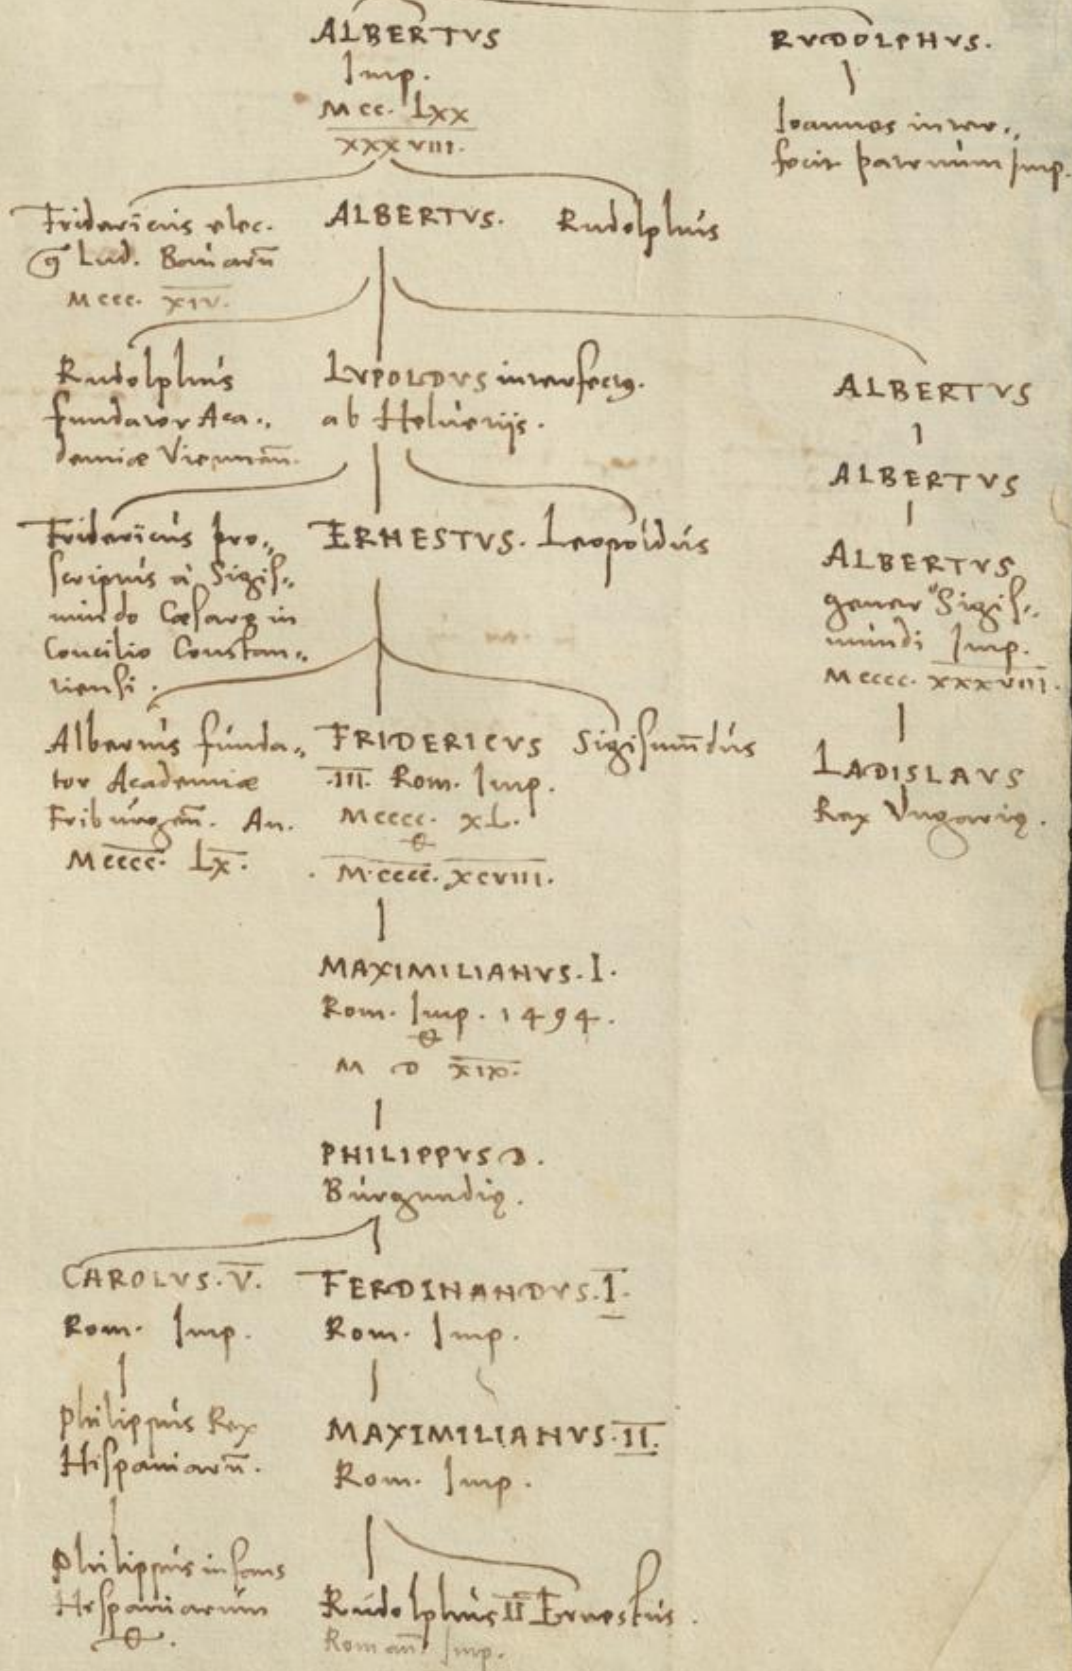 ALBERTVS
Imp.
MCC. LXX
XXXVIII.
RVDOLPHVS.
Ioannes inter„
fecit patruum Imp.
Fridericus elec.
9 Lud. Bauarū
MCCC. XIV.
ALBERTVS.
Rudolphus
Rudolphus
fundator Aca„
demiæ Viennañ.
LVPOLDVS interfect9.
ab Heluetijs.
ALBERTVS
ALBERTVS
ALBERTVS
gener Sigis„
mundi Imp.
MCCCC. XXXVIII.
LADISLAVS
Rex Vngarię.
Fridericus pro„
scriptus à Sigis„
mundo Cæsare in
Concilio Constan„
tiensi.
ERNESTVS.
Leopoldus
Albertus funda„
tor Academiæ
Friburgeñ. An.
MCCCC. LX.
FRIDERICVS
.III. Rom. Imp.
MCCCC. XL.
MCCCC. XCVIII.
Sigismūdus
MAXIMILIANVS. I.
Rom. Imp. 1494.
M D XIX.
PHILIPPVS D.
Burgundię.
CAROLVS. V.
Rom. Imp.
Philippus Rex
Hispaniarū.
Philippus infans
Hispaniarum
FERDINANDVS. I.
Rom. Imp.
MAXIMILIANVS. II.
Rom. Imp.
Rudolphus II Ernestus.
Romañ Imp.